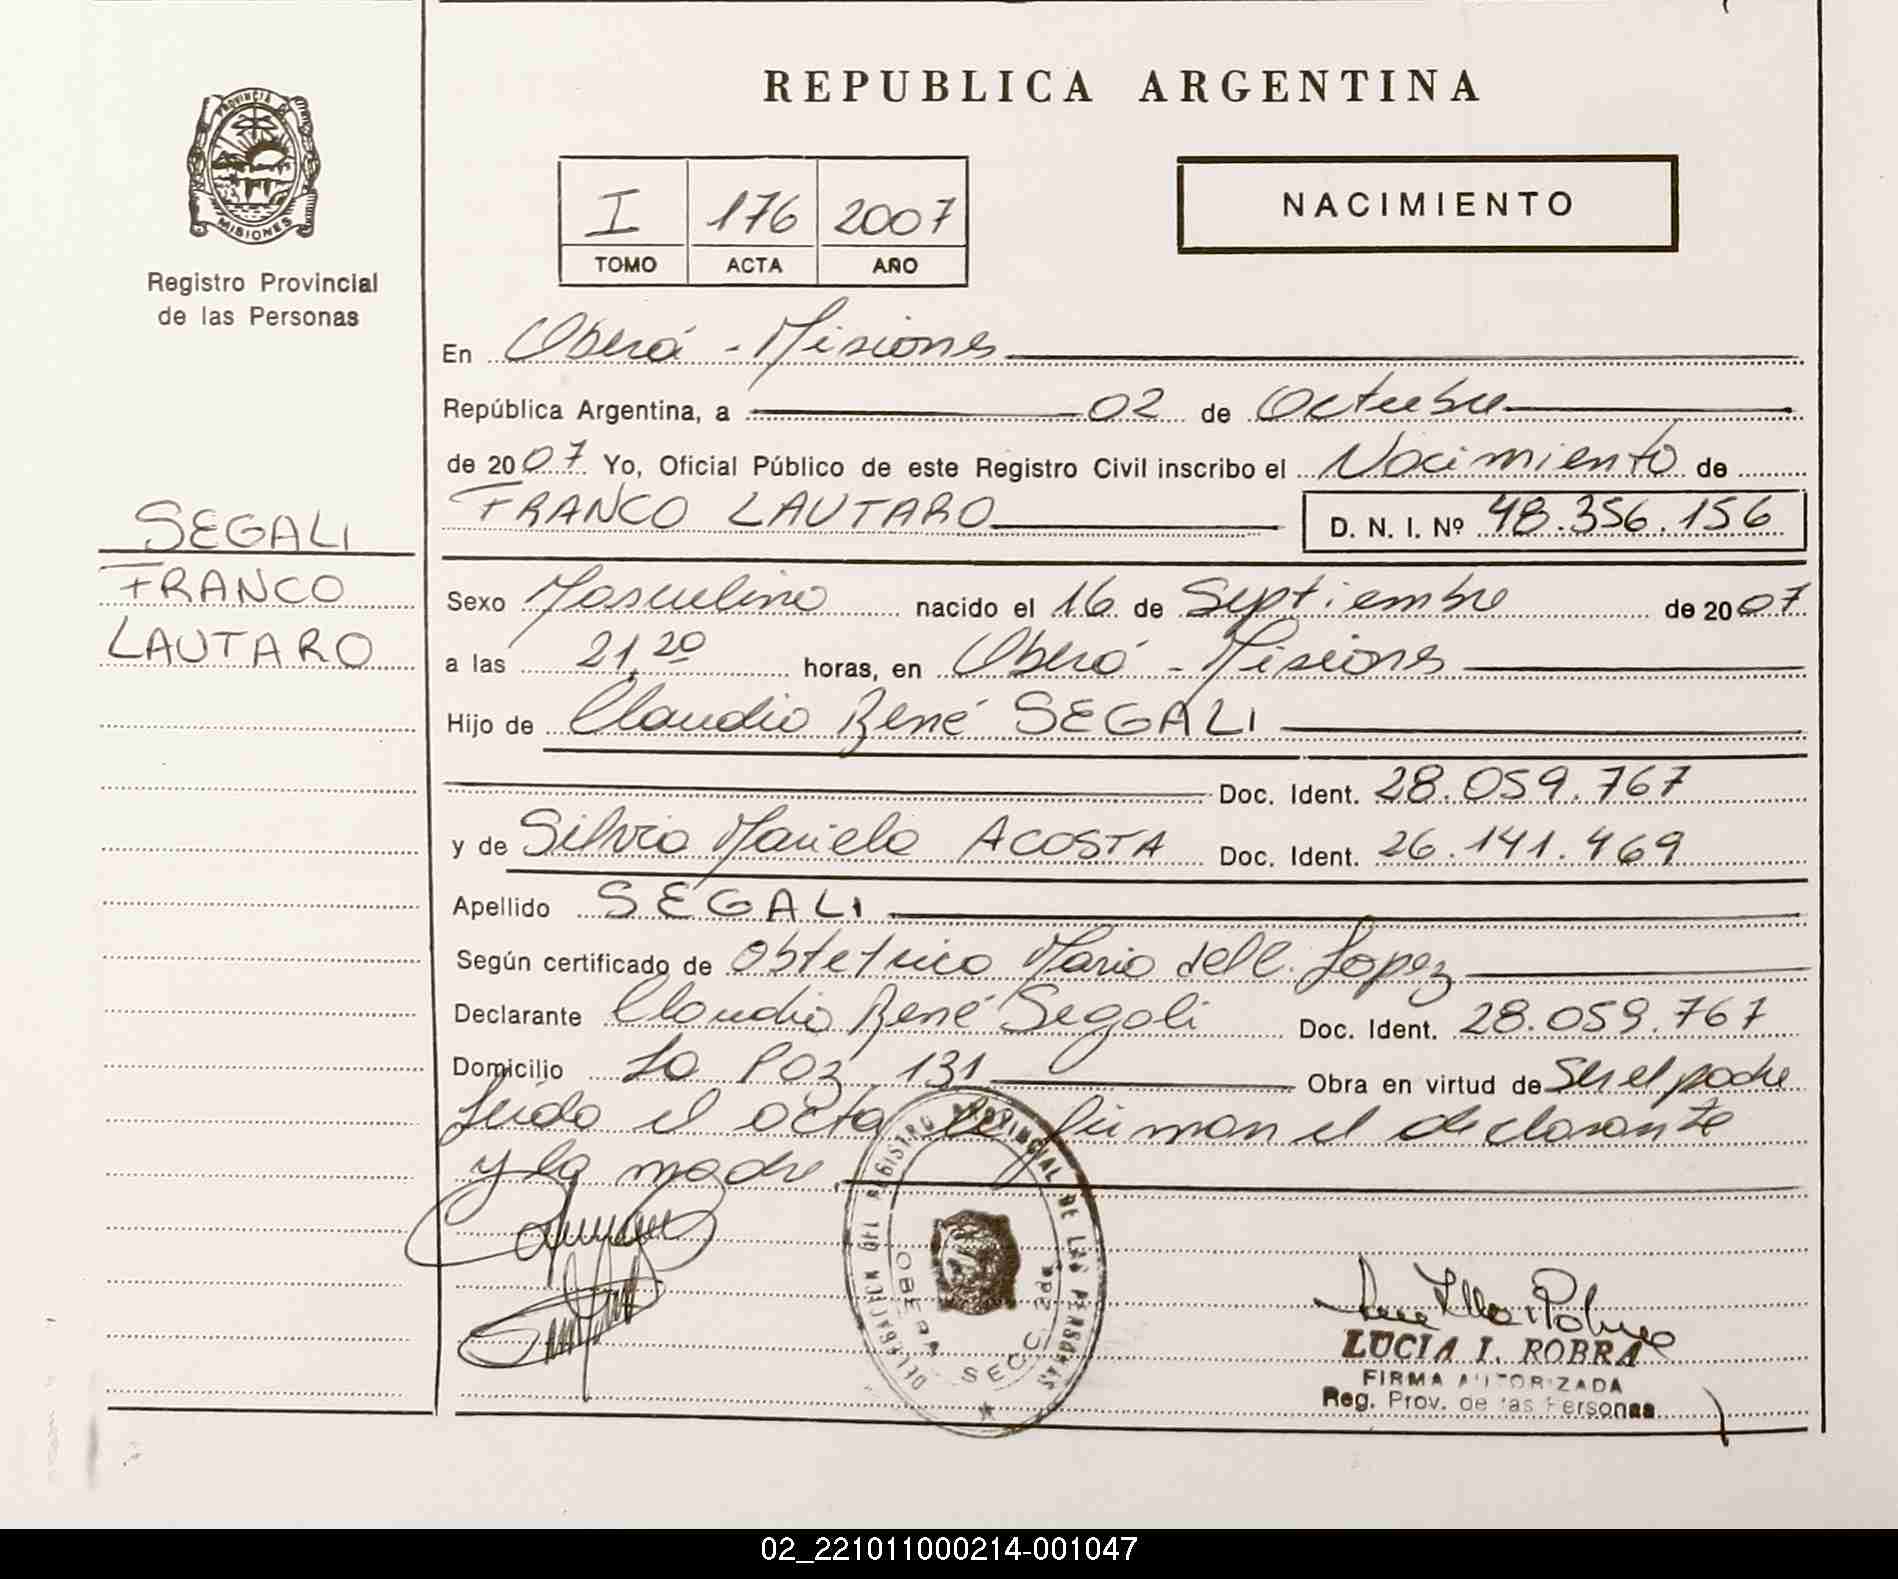 REPUBLICA ARGENTINA
PROVINCIA D
MISIONES
Registro Provincial
de las Personas
I 176 2007
TOMO ACTA AÑO
NACIMIENTO
SEGALI
FRANCO
LAUTARO
En Oberá - Misiones
República Argentina, a 02 de Octubre
de 2007 Yo, Oficial Público de este Registro Civil inscribo el Nacimiento de
FRANCO LAUTARO D. N. I. Nº 48.356.156
Sexo Masculino nacido el 16 de Septiembre de 2007
a las 21,20 horas, en Oberá - Misiones
Hijo de Claudio René SEGALI
Doc. Ident. 28.059.767
y de Silvia Mariela ACOSTA Doc. Ident. 26.141.469
Apellido SEGALI
Según certificado de Obstetrica Maria del C. Lopez
Declarante Claudio René Segali Doc. Ident. 28.059.767
Domicilio La Paz 131 Obra en virtud de Ser el padre
Leida el acta la firman el declarante
y la madre
DELEGACION DEL REGISTRO PROVINCIAL DE LAS PERSONAS
OBERA SECC. 2da
LUCIA I. ROBRA
FIRMA AUTORIZADA
Reg. Prov. de las Personas
02_221011000214-001047